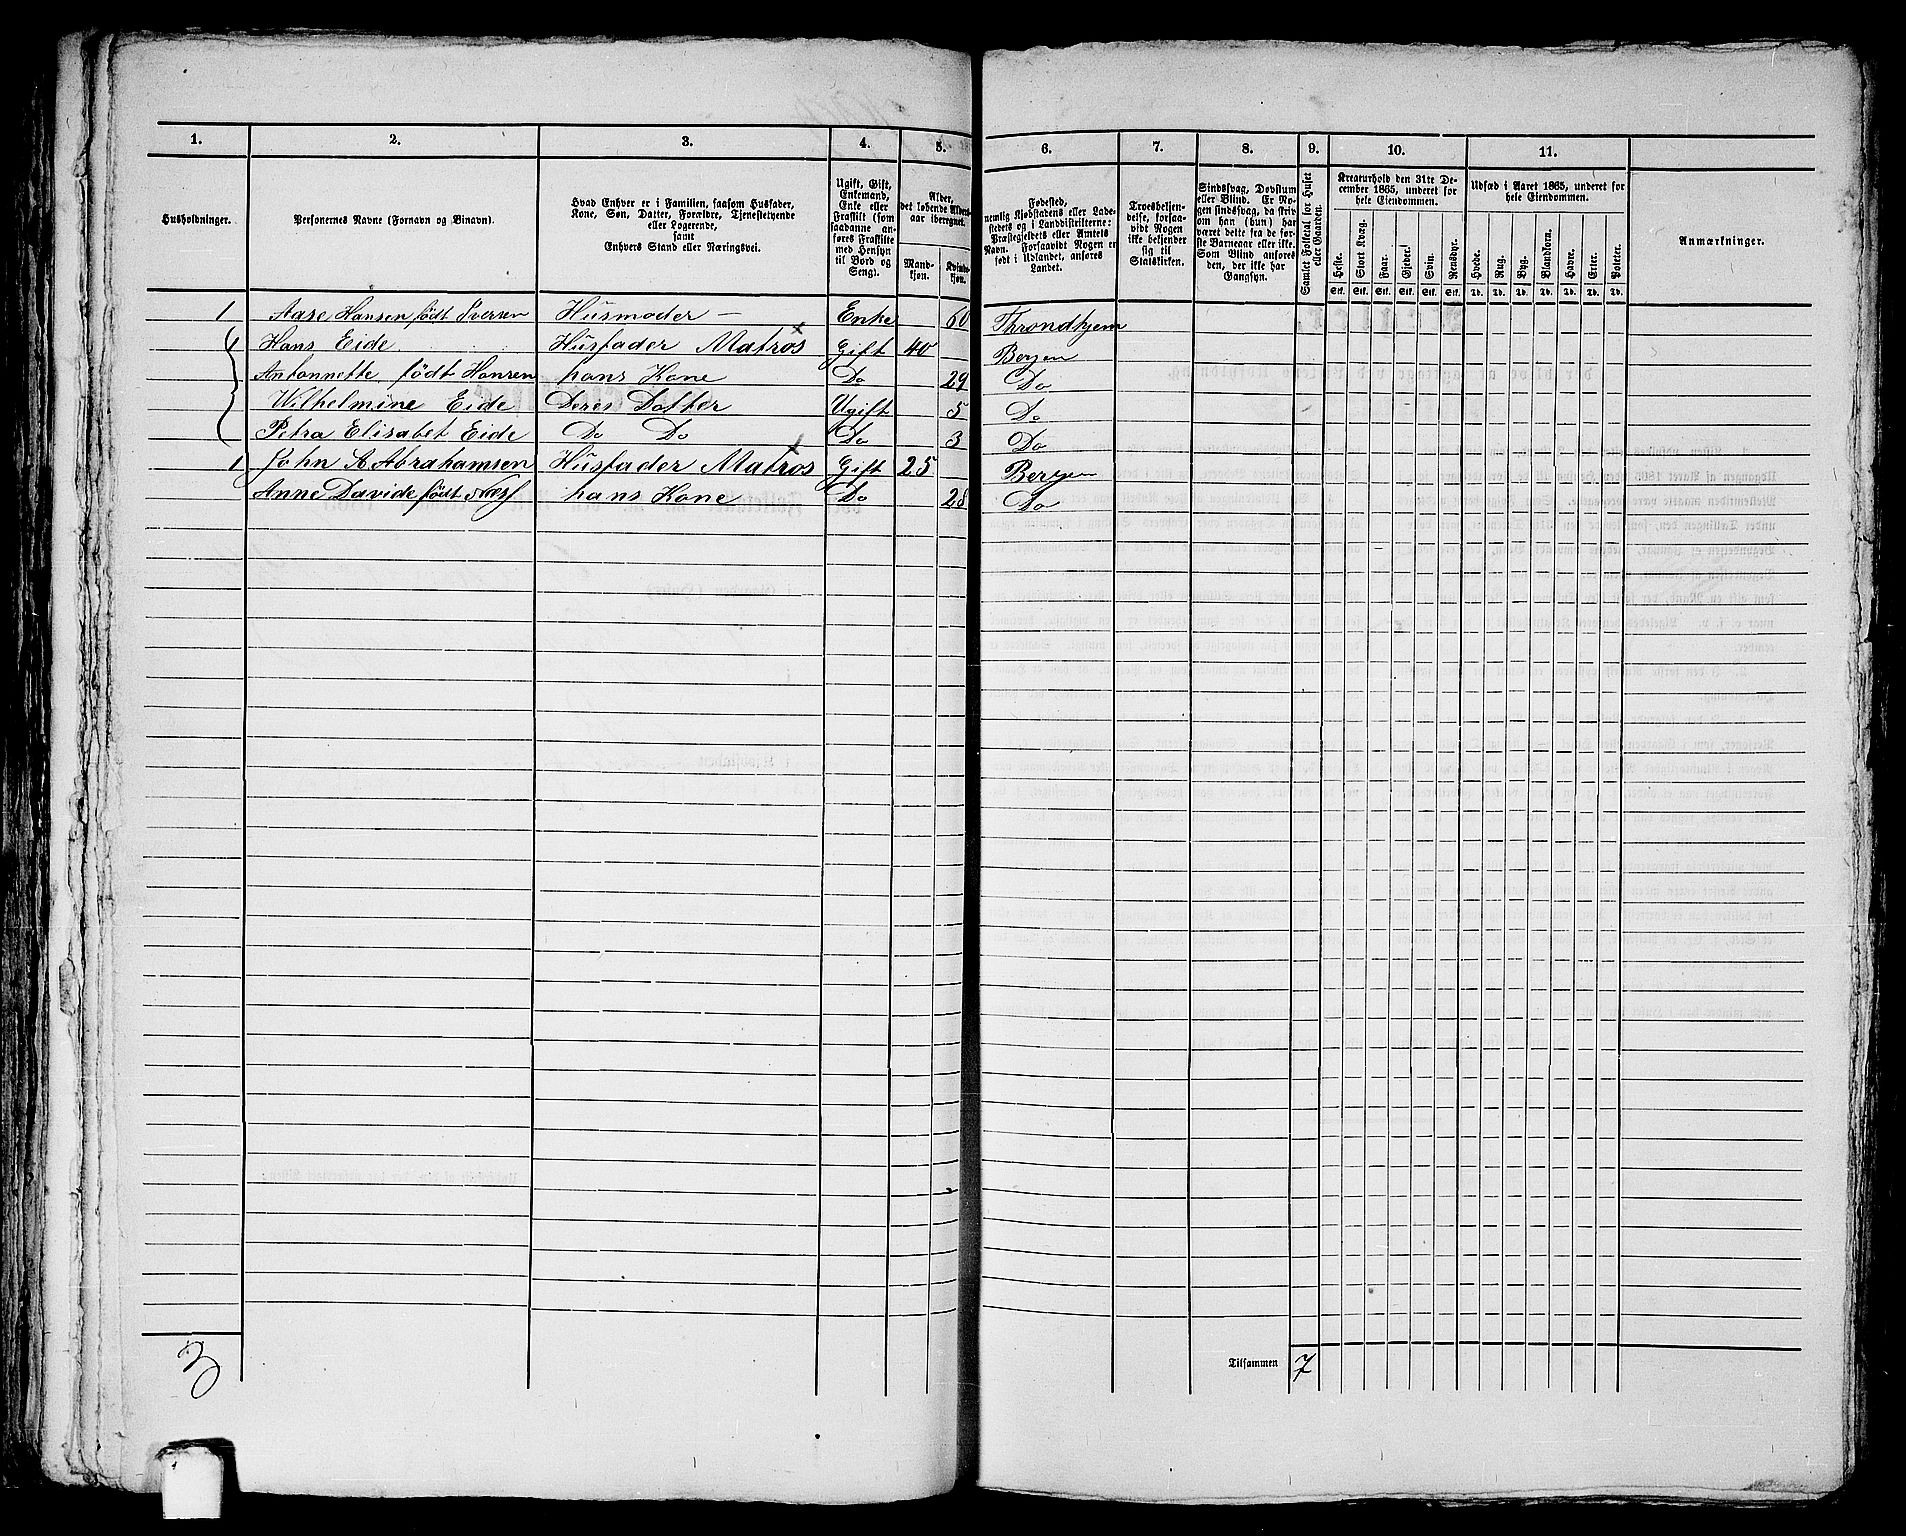 1. 2. 3. 4. 5. 6. 7. 8. 9. 10. 11.
Husholdninger.
Personernes Navne (Fornavn og Binavn).
Hvad Enhver er i Familien, saasom Husfader,
Kone, Søn, Datter, Forældre, Tjenestetyende
eller Logerende,
samt
Enhvers Stand eller Næringsvei.
Ugift, Gift,
Enkemand,
Enke eller
Fraskilt (som
saadanne an-
føres Fraskilte
med Hensyn
til Bord og
Seng).
Alder,
det løbende Alders-
aar iberegnet.
Mand-
kjøn.
Kvinde-
kjøn.
Fødested,
nemlig Kjøbstadens eller Lade-
stedets og i Landdistrikterne:
Præstegjeldets eller Amtets
Navn. Forsaavidt Nogen er
født i Udlandet, anføres
Landet.
Troesbekjen-
delse, forsaa-
vidt Nogen
ikke bekjender
sig til
Statskirken.
Sindssvag, Døvstum
eller Blind. Er No-
gen sindssvag, da skriv
om han (hun) har
været dette fra de før-
ste Barneaar eller ikke.
Som Blind ansøres
den, der ikke har
Gangsyn.
Samlet Folketal for Huset
eller Gaarden.
Kreaturhold den 31te De-
cember 1865, underet for
hele Eiendommen.
Heste. Stort Kvæg. Faar. Gjeder. Svin. Rensdyr.
Stk. Stk. Stk. Stk. Stk. Stk.
Udsæd i Aaret 1865, underet for
hele Eiendommen.
Hvede. Rug. Byg. Blandkorn. Havre. Erter. Poteter.
Td. Td. Td. Td. Td. Td. Td.
Anmærkninger.
1 Aase Hansen født Iversen Husmoder — Enke 60 Throndhjem
1 Hans Eide Husfader Matros Gift 40 Bergen
Antonnette født Hansen hans Kone Do 29 Do
Wilhelmine Eide Deres Datter Ugift 5 Do
Petra Elisabet Eide Do Do Do 3 Do
1 John A Abrahamsen Husfader Matros Gift 25 Bergen
Anne Davide født hans Kone Do 28 Do
3
Tilsammen 7